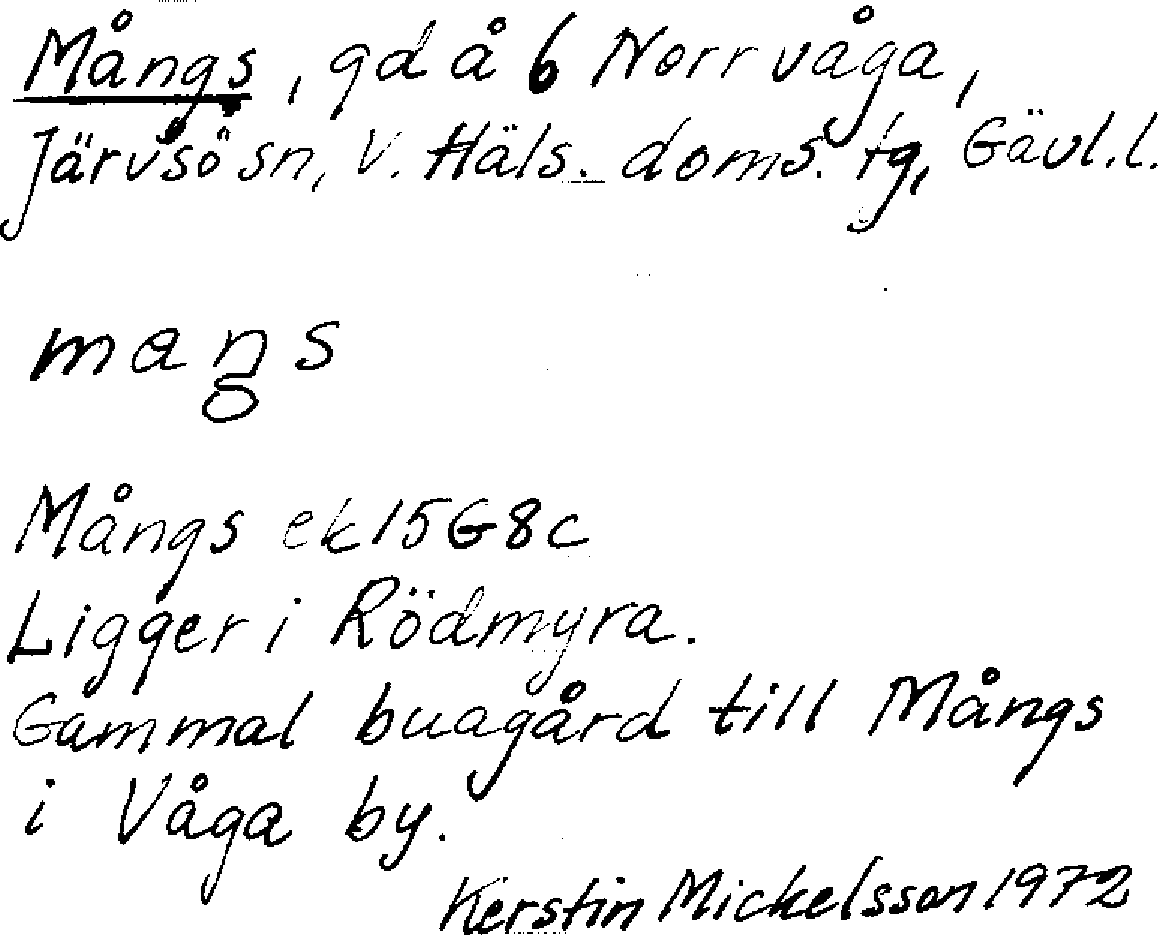 Mångs, gd å 6 Norrvåga,
Järvsö sn, V. Häls. doms. tg, Gävl.l.
mans̥
Mångs ek 15G8c
Ligger i Rödmyra.
Gammal buagård till Mångs
i Våga by.
Kerstin Mickelsson 1972